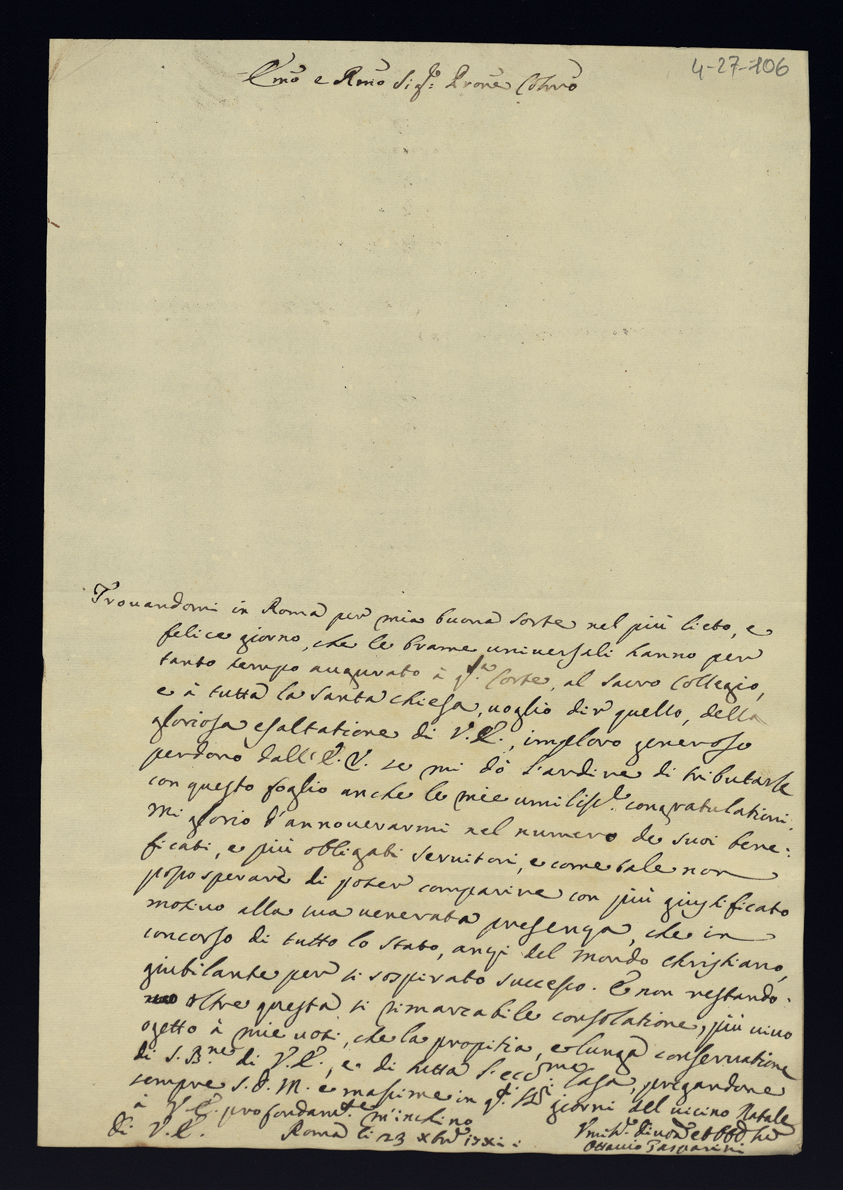 4-27-106
Em̃o e Rmõ Sigr: Prõne Colmõ
Trouandomi in Roma per mia buona sorte nel più lieto, e
felice giorno, che le brame uniuersali hanno per
tanto tempo augurato à qta. Corte, al Sacro Collegio,
e à tutta la Santa chiesa, uoglio dir quello, della
gloriosa esaltatione di V.E., imploro generoso
perdono dall'E.V. se mi dò l'ardire di tributarle
con questo foglio anche le mie umilisse. congratulationi.
Mi glorio d'annouerarmi nel numero de suoi bene:
ficati, e più obligati seruitori, e come tale non
posso sperare di poter comparire con più giustificato
motiuo alla sua uenerata presenza, che in
concorso di tutto lo stato, anzi del mondo christiano,
giubilante per sì sospirato successo. E non restando
oltre questa sì rimarcabile consolatione, più uiuo
ogetto à miei uoti, che la propitia, e lunga conseruatione
di S. Bne. di V.E., e di tutta l'eccma Casa, pregandone
sempre S.D.M. e massime in qti. Sti. giorni del uicino Natale
à V.E. profondamte m'inchino
di V.E. Roma li 23 Xbre
Ottauio Gasparini